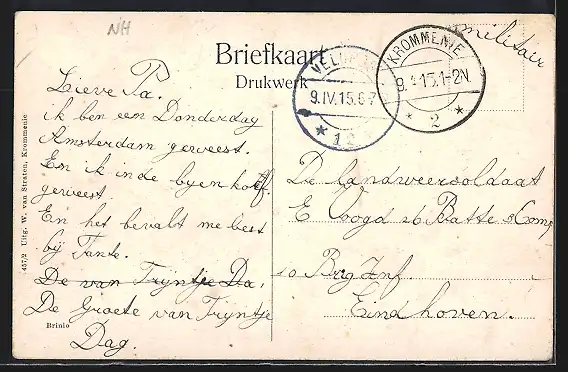 NH
militair
Briefkaart
Drukwerk
VELDP
9.IV.15.6-7
* 1
KROMMENIE
9. 15.1-2N
* 2 *
Lieve Pa.
ik ben een Donderdag
Amsterdam geweest.
En ik in de byenkorf.
geweest.
En het bevalt me best
bij Tante.
De van Tryntje Da.
De Groete van Tryntje
Dag.
De Landweersoldaat
E Oogd 26 Batte 3 Comp
10 Brg Inf.
Eindhoven.
457/2 Uitg. W. van Straten, Krommenie
Brinio